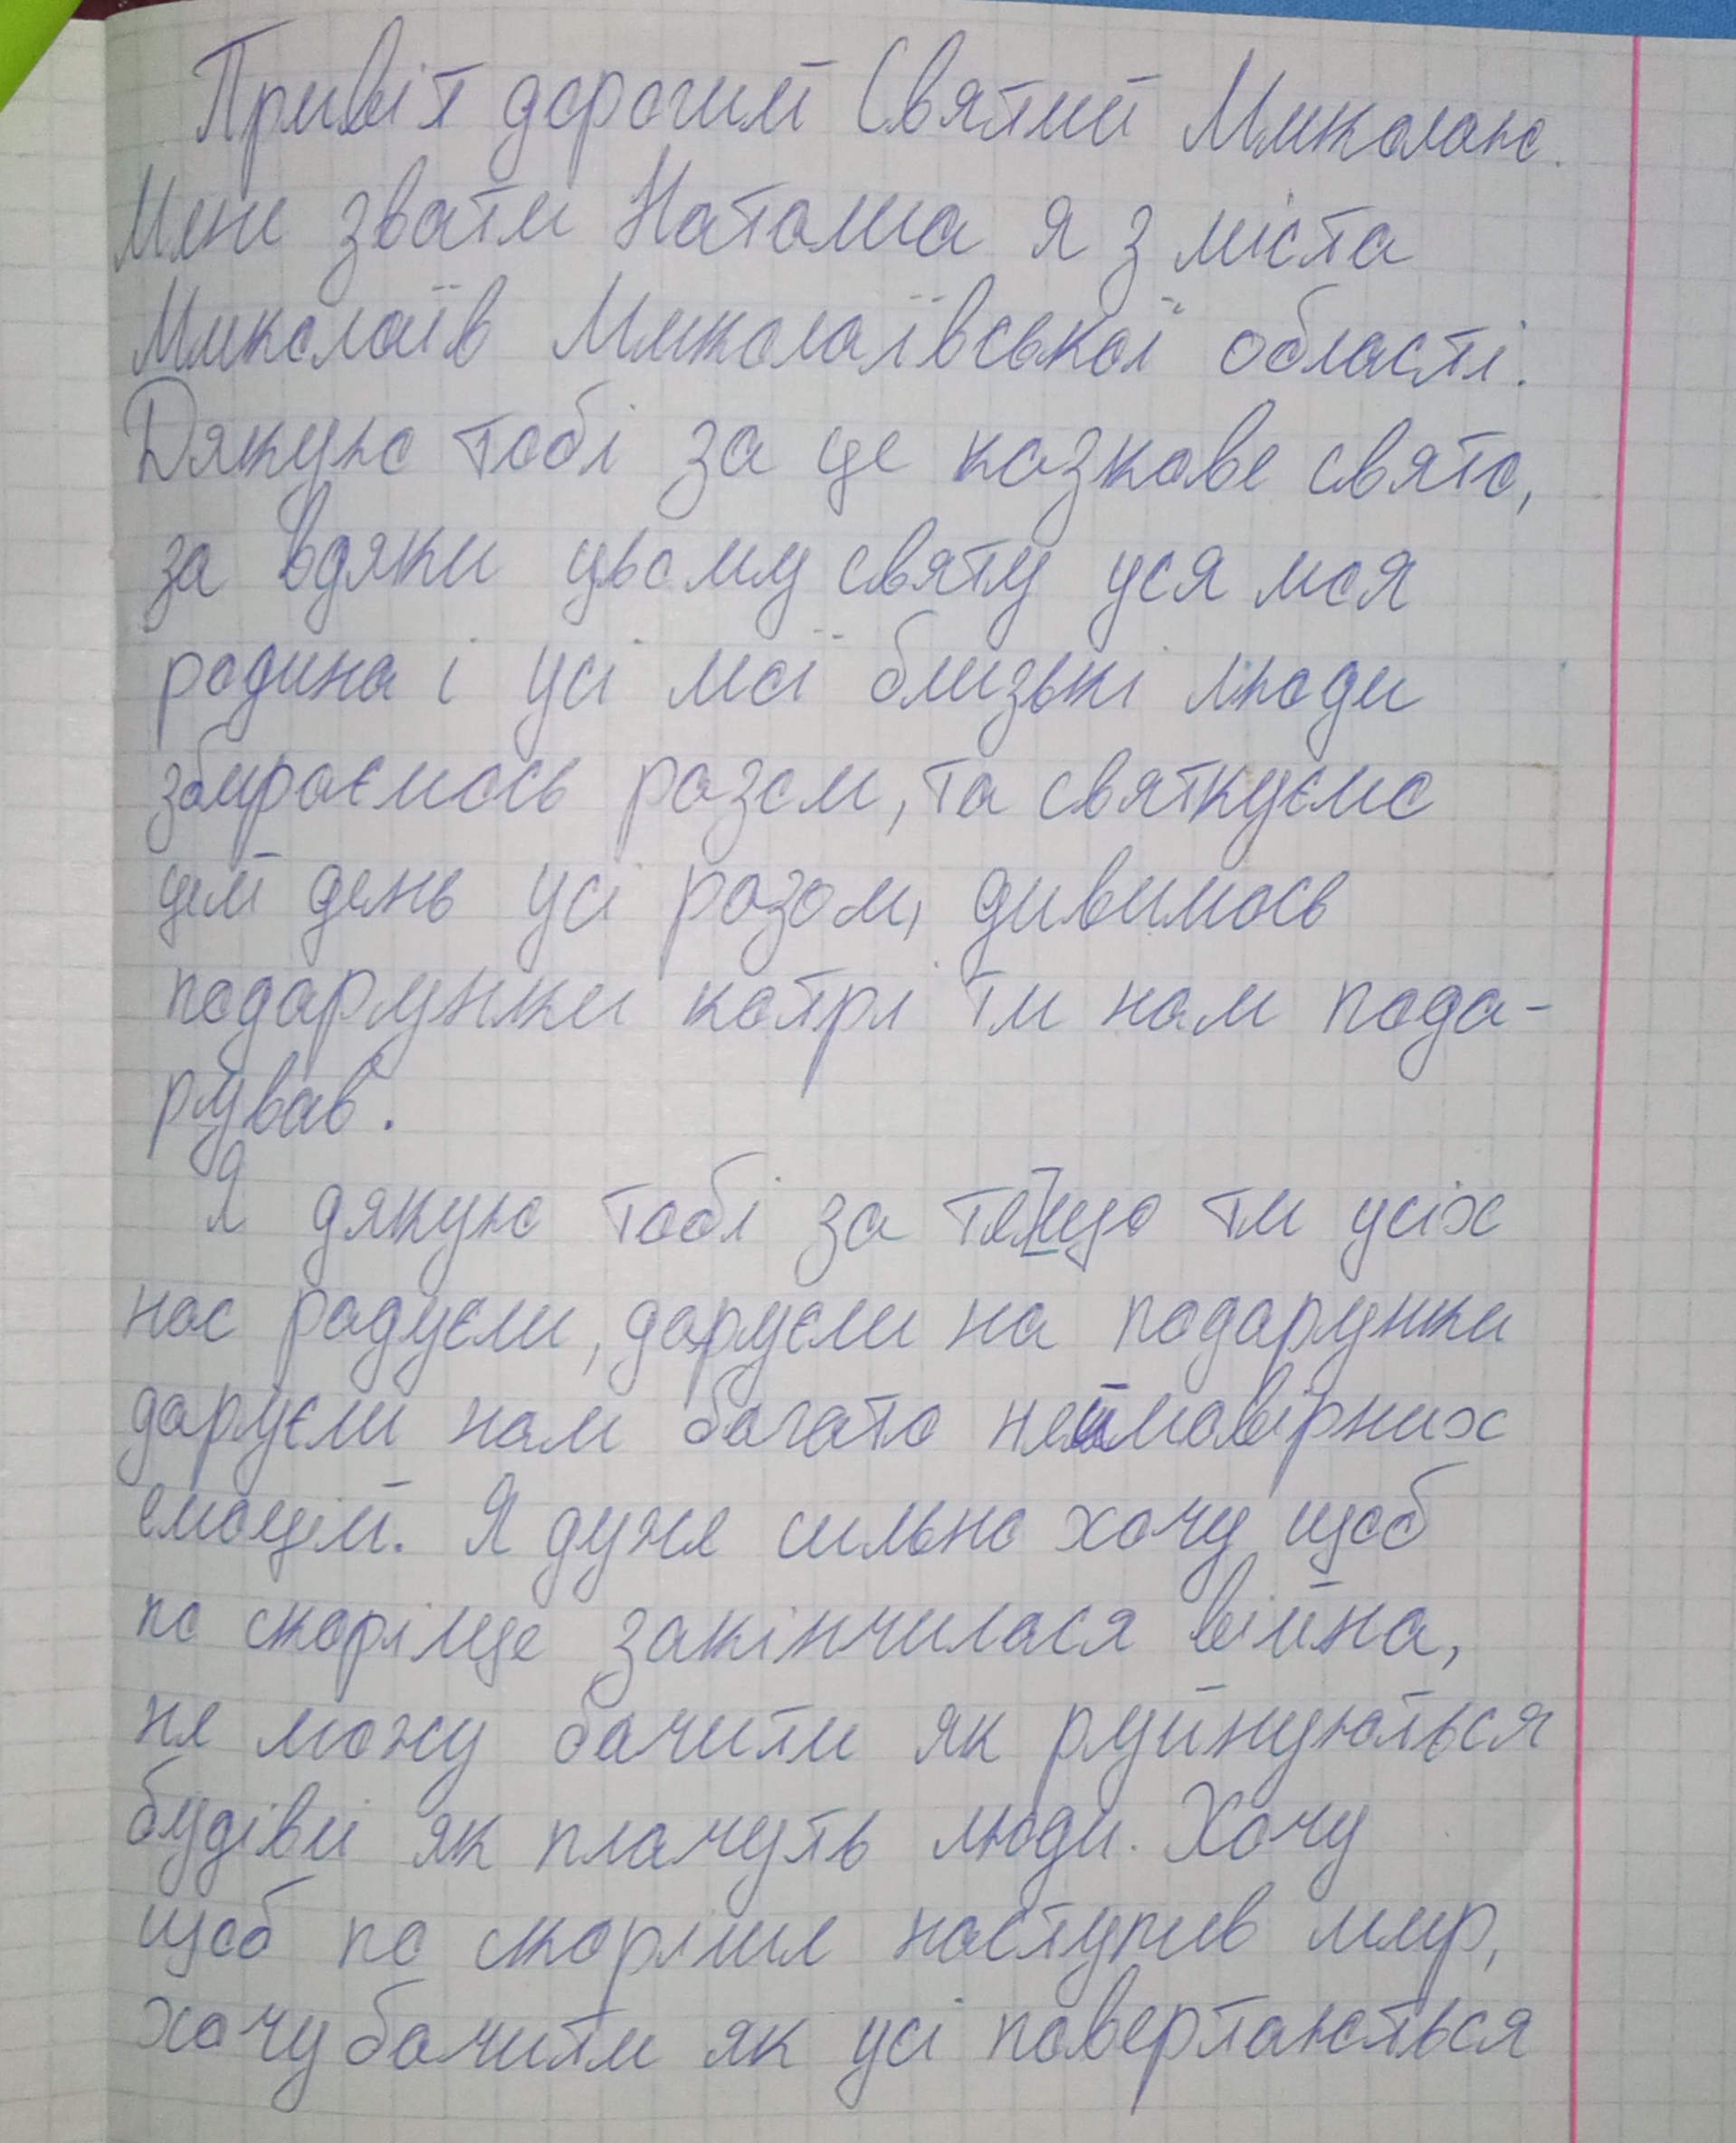 Привіт дорогий Святий Миколаю.
Мене звати Наташа я з міста
Миколаїв Миколаївської області.
Дякую тобі за це казкове свято,
за вдяки цьому святу уся моя
родина і усі мої близькі люди
збираємось разом, та святкуємо
цей день усі разом, дивимось
подарунки котрі ти нам пода-
рував.
Я дякую тобі за те що ти усіх
нас радуєш, даруєш на подарунки
даруєш нам багато неймовірних
емоцій. Я дуже сильно хочу щоб
по скоріще закінчилася війна,
не можу бачити як руйнуються
будівлі як плачуть люди. Хочу
щоб по скоріше наступив мир,
хочу бачити як усі повертаються